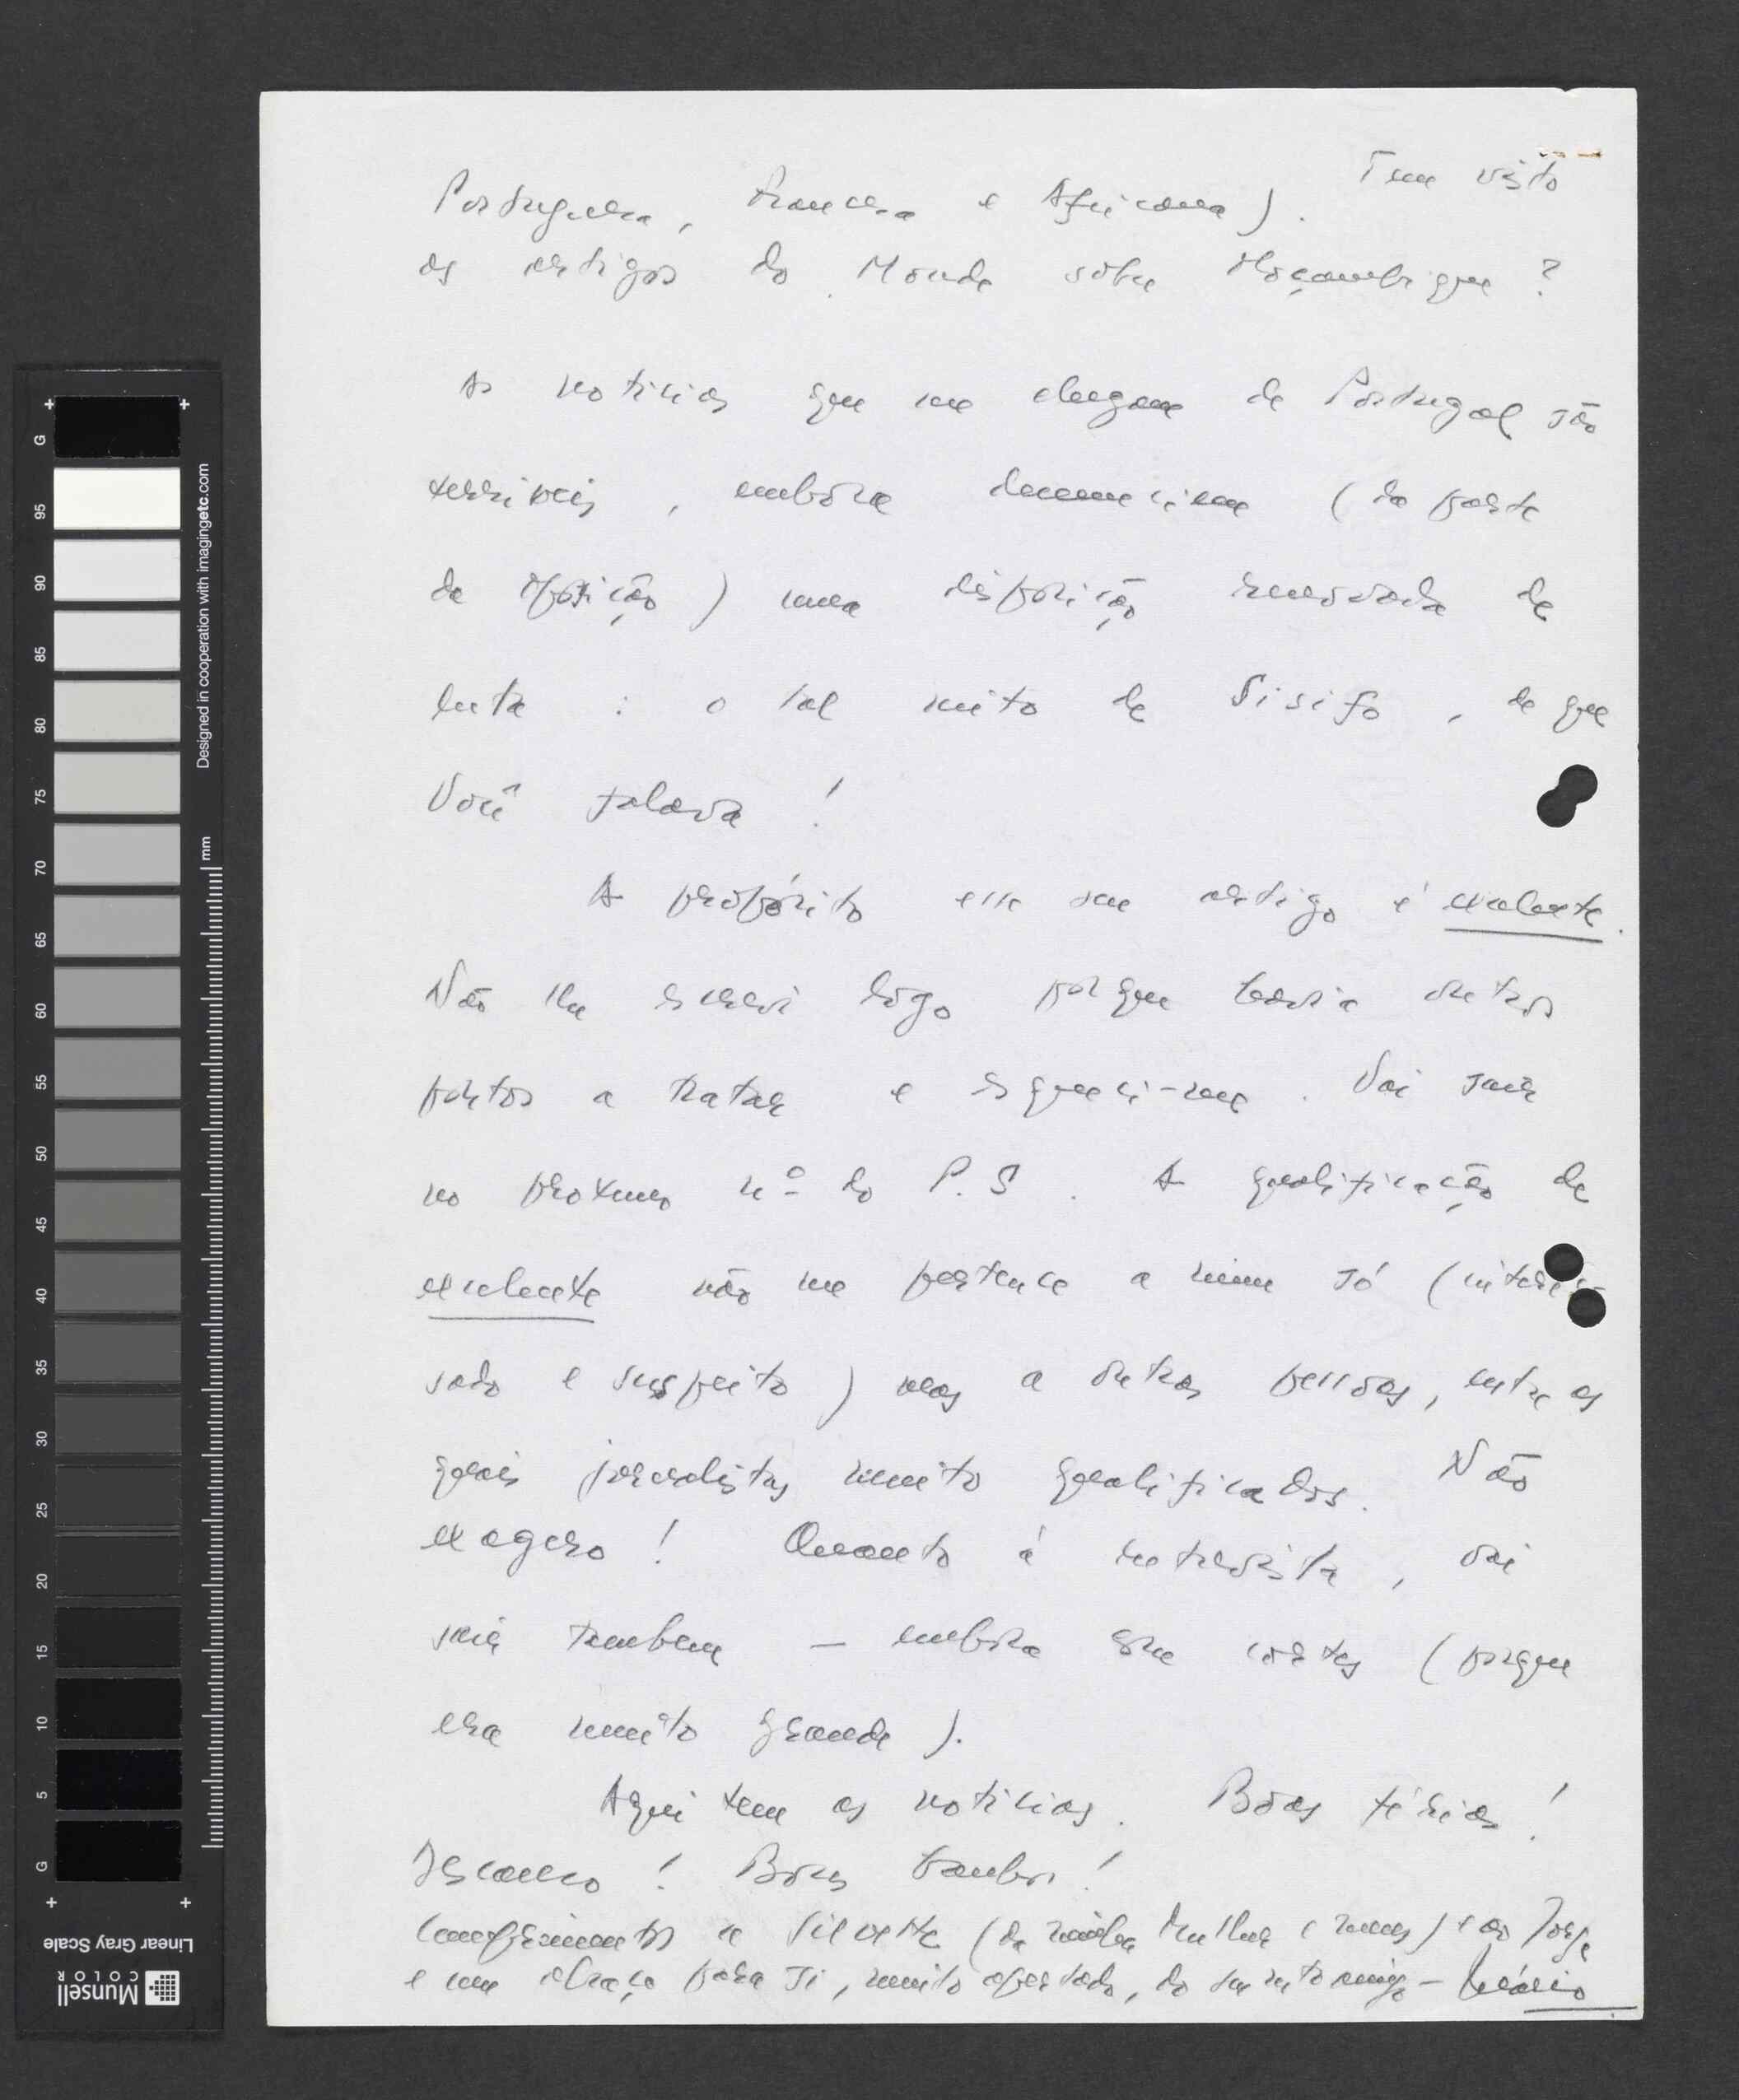 Portuguesa, Francesa e Africana). Tem visto
os artigos do Monde sobre Moçambique?
As noticias que me chegam de Portugal são
terriveis, embora denunciem (da parte
da oposição) uma disposição renovada de
luta: o tal mito de Sisifo, de que
Você falava!
A propósito esse seu artigo é excelente.
Não lhe escrevi logo porque havia outros
pontos a tratar e esqueci-me. Vai sair
no proximo nº do P.S. A qualificação de
excelente não me pertence a mim só (interes-
sado e suspeito) mas a outras pessoas, entre as
quais jornalistas muito qualificados. Não
exagero! Quanto á entrevista, vai
sair tambem – embora com cortes (porque
era muito grande).
Aqui tem as noticias. Boas férias!
Descanso! Bons banhos!
Cumprimentos a (da minha Mulher e meus) e ao Jorge
e um abraço para si, muito apertado, do seu mto amigo – Mário
G
95
90
85
80
75
70
65
60
55
50
45
40
35
30
25
20
15
10
5
G
mm
Designed in cooperation with imagingetc.com
Linear Gray Scale
Munsell
COLOR